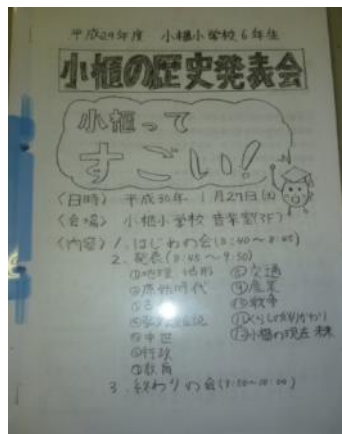 平成29年度 小櫃小学校6年生
小櫃の歴史発表会
小櫃って
すごい!
〈日時〉 平成30年 1月27日(土)
〈会場〉 小櫃小学校 音楽室(3F)
〈内容〉 1. はじめの会(8:40～8:45)
2. 発表(8:45～9:50)
①地理・地形
②原始時代
③古
⑤中世
⑥行政
⑦教育
⑧交通
⑨産業
⑩戦争
⑪くらしのうつりかわり
⑫小櫃の現在・未来
3. 終わりの会(9:50～10:00)